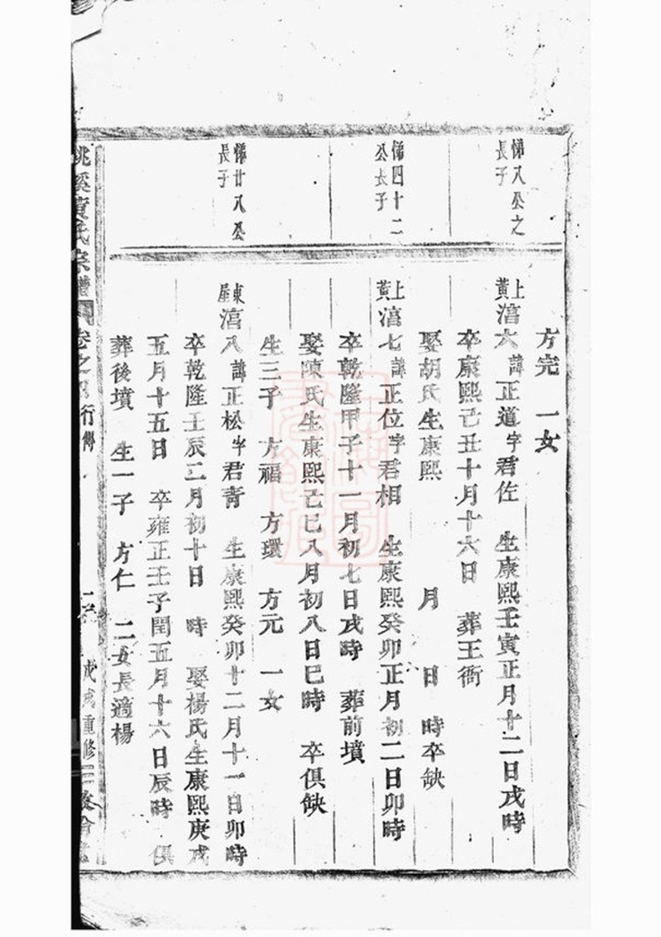 悌八公之
長子
悌四十二
公長子
悌廿八公
長子
方完 一女
上黃
湻六 諱正道 字君佐 生康熙壬寅正月十二日戌時
卒康熙己丑十月十六日 葬王衙
娶胡氏生康熙 月 日 時卒缺
上黃
湻七 諱正位 字君相 生康熙癸卯正月初二日卯時
卒乾隆甲子十一月初七日戌時 葬前墳
娶陳氏生康熙己巳八月初八日巳時 卒俱缺
生三子 方福 方環 方元 一女
東屋
湻八 諱正松 字君青 生康熙癸卯十二月十一日卯時
卒乾隆壬辰二月初十日 時 娶楊氏生康熙庚戌
五月十五日 卒雍正壬子閏五月十六日辰時 俱
葬後墳 生一子 方仁 二女長適楊
溪黃氏宗譜 卷之 行傳
戊戌重修